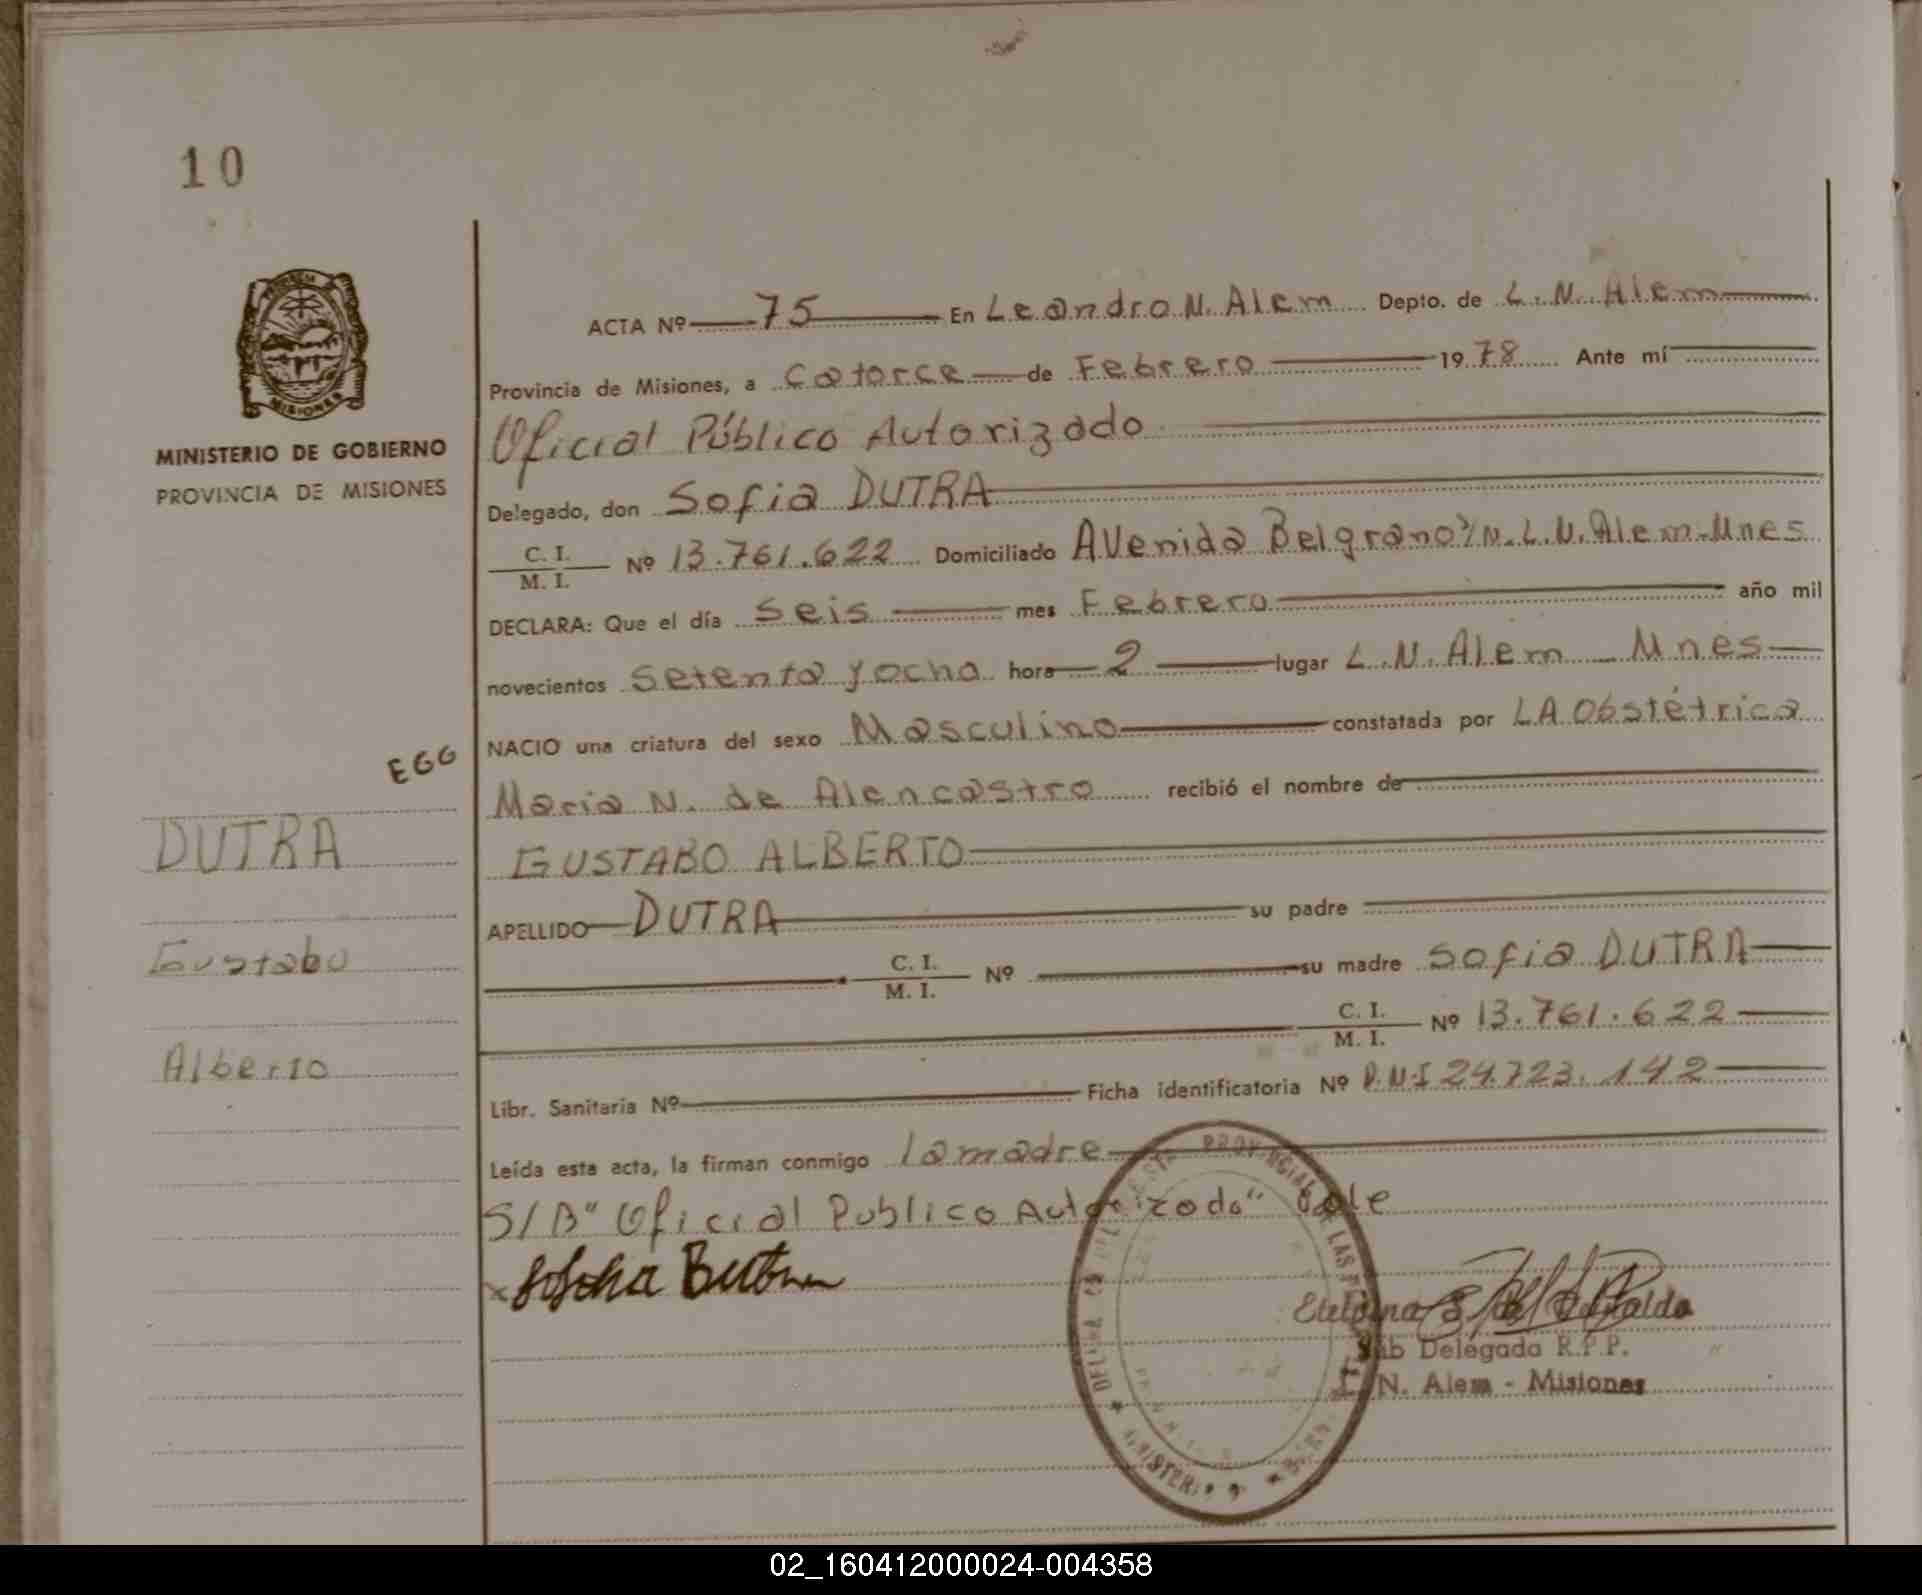 10
MISIONES
MINISTERIO DE GOBIERNO
PROVINCIA DE MISIONES
EGG
DUTRA
Gustabo
Alberto
ACTA Nº 75 En Leandro N. Alem Depto. de L. N. Alem
Provincia de Misiones, a catorce de Febrero 1978 Ante mí
Oficial Público Autorizado
Delegado, don Sofia DUTRA
C. I.
M. I. Nº 13.761.622 Domiciliado Avenida Belgrano S/N. L.N. Alem-Mnes
DECLARA: Que el día seis mes Febrero año mil
novecientos setenta y ocho hora 2 lugar L.N. Alem - Mnes
NACIO una criatura del sexo Masculino constatada por LA Obstétrica
Maria N. de Alencastro recibió el nombre de
GUSTABO ALBERTO
APELLIDO DUTRA su padre
C. I.
M. I. Nº su madre Sofia DUTRA
C. I.
M. I. Nº 13.761.622
Libr. Sanitaria Nº Ficha identificatoria Nº D.N.I 24.723.142
Leída esta acta, la firman conmigo la madre
S/B" Oficial Publico Autorizado" bale
Sub Delegada R.P.P.
L. N. Alem - Misiones
02_160412000024-004358